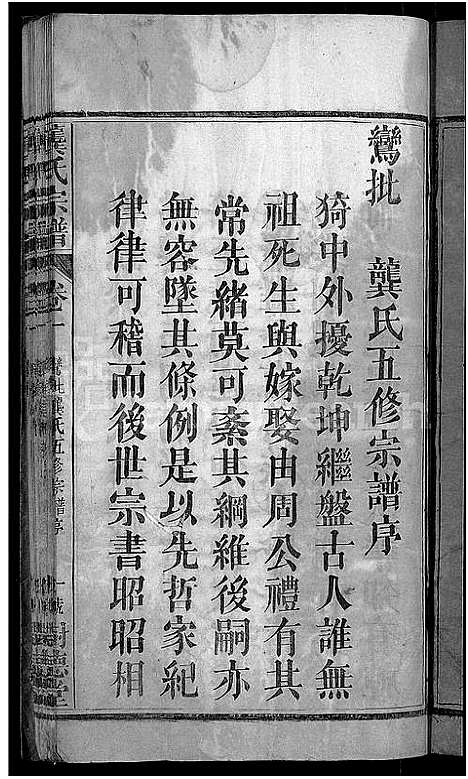 鸞批　龔氏五修宗譜序
猗中外擾乾坤繼盤古人誰無
祖死生與嫁娶由周公禮有其
常先緒莫可紊其綱維後嗣亦
無容墜其條例是以先哲家紀
律律可稽而後世宗書昭昭相
龔氏宗譜
卷一
鸞批龔氏五修宗譜序